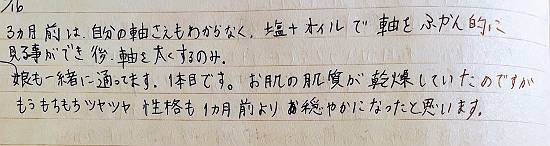 16
3ヵ月前は、自分の軸さえもわからなく、塩+オイルで軸をふかん的に
見る事ができ後、軸を太くするのみ。
娘も一緒に通ってます。1本目です。お肌の肌質が乾燥していたのですが
もうもちもちツヤツヤ 性格も1カ月前よりお穏やかになったと思います。